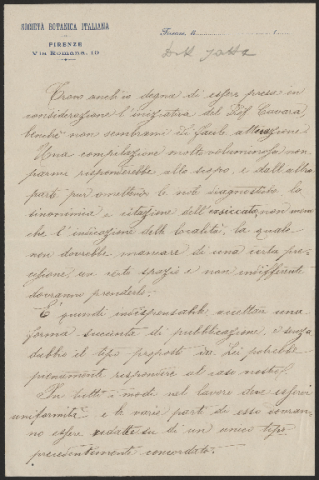 SOCIETÀ BOTANICA ITALIANA
FIRENZE
Via Romana, 19
Firenze, li
Trovo anch'io degna di esser presa in
considerazione l'iniziativa del Prof Cavara,
benché non sembrami di facile attuazione
Una compilazione molto voluminosa non
parmi risponderebbe allo scopo, e dall'altra
parte pur omettendo le not diagnostiche la
sinonimia e citazione dell'essiccata, non meno
che l'indicazione delle località, la quale
non dovrebbe mancare di una certa pre-
cisione, un certo spazio e non indifferente
dovranno prendere.
E' quindi indispensabile accettare una
forma succinta di pubblicazione, e senza
dubbio il tipo proposto da Lei potrebbe
pienamente rispondere al caso nostro.
In tutti i modi nel lavoro deve esservi
uniformità e le varie parti di esso
no essere redatte su di un unico tipo
precedentemente concordato.